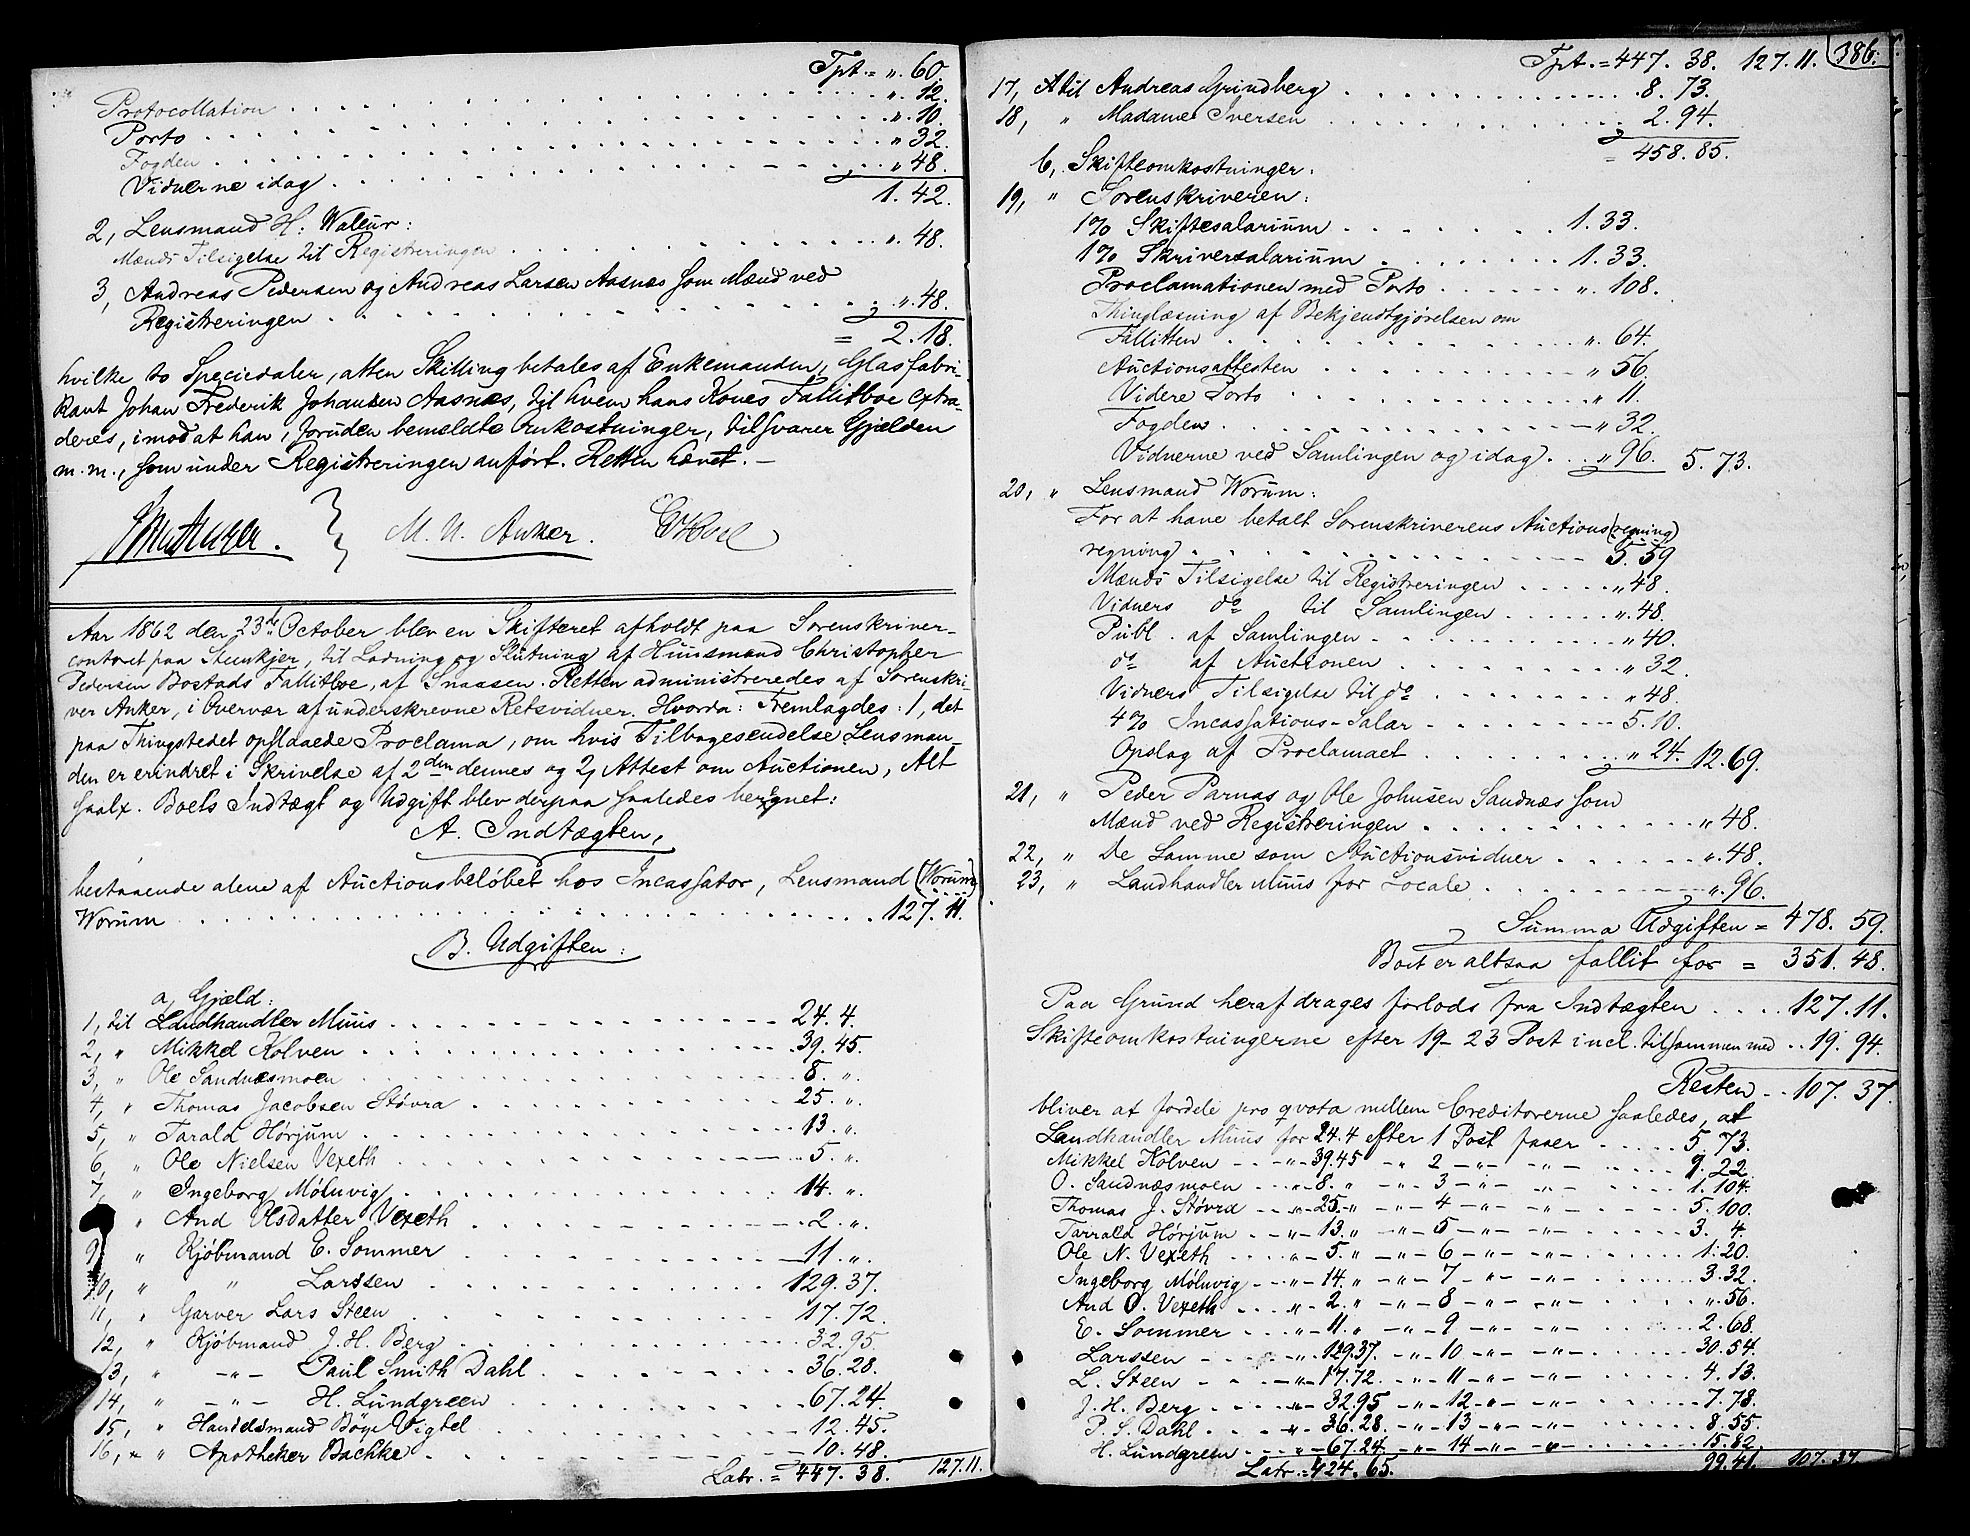 Tpt. = „. 60.
Protocollation . . . „. 12.
Porto . . . „. 10.
Fogden . . . „ 32.
Vidnerne idag . . . „ 48.
1. 42.
2, Lensmand H: Waleur:
Mænds Tilsigelse til Registreringen . . . „. 48.
3, Andreas Pedersen og Andreas Larsen Aasnæs som Mænd ved
Registreringen . . . „. 48.
= 2. 18.
hvilke to Speciedaler, atten Skilling betales af Enkemanden, Glasfabri-
kant Johan Frederik Johansen Aasnæs, til hvem hans Kones Fallitboe extra-
deres, imod at han, foruden bemeldte Omkostninger, tilsvarer Gjelden
m. m., som under Registreringen anført. Retten hævet. —
M. U. Anker.
Aar 1862 den 23de October blev en Skifteret afholdt paa Sorenskriver-
contoret paa Stenkjer, til Lodning og Slutning af Huusmand Christopher
Pedersen Bostads Fallitboe, af Snaasen. Retten administreredes af Sorenskri-
ver Anker, i Overvær af underskrevne Retsvidner. Hvorda: Fremlagdes: 1, det
paa Thingstedet opslaaede Proclama, om hvis Tilbagesendelse Lensman-
den er erindret i Skrivelse af 2den dennes og 2, Attest om Auctionen, Alt
saalx. Boets Indtægt og Udgift blev derpaa saaledes beregnet:
A. Indtægten,
bestaaende alene af Auctionsbeløbet hos Incassator, Lensmand (Worum)
Worum . . . 127. 11.
B. Udgiften:
a, Gjæld:
1, til Landhandler Muus . . . 24. 4.
2, „ Mikkel Kolven . . . 39. 45.
3, „ Ole Sandnæsmoen . . . 8. „.
4, „ Thomas Jacobsen Støvra . . . 25. „.
5, „ Tarald Hørjum . . . 13. „.
6, „ Ole Nielsen Vexeth . . . 5. „.
7, „ Ingeborg Møluvig . . . 14. „.
„ And Olsdatter Vexeth . . . 2. „.
9, „ Kjøbmand E. Sommer . . . 11. „.
10, „ „ Larssen . . . 129. 37.
11, „ Garver Lars Steen . . . 17. 72.
12, „ Kjøbmand J. H. Berg . . . 32. 95.
13, „ -„- Paul Smith Dahl . . . 36. 28.
14, „ -„- H. Lundgreen . . . 67. 24.
15, „ Handelsmand Bøye Vigtel . . . 12. 45.
16, „ Apotheker Bachke . . . 10. 48.
Latr. = 447. 38. 127. 11.
Tpt. = 447. 38. 127. 11. 386.
17, A til Andreas Grindberg . . . 8. 73.
18, „ Madame Iversen . . . 2. 94.
= 458. 85.
b, Skifteomkostninger:
19, „ Sorenskriveren:
1% Skiftesalarium . . . 1. 33.
1% Skriversalarium . . . 1. 33.
Proclamationen med Porto . . . „. 108.
Thinglæsning af Bekjendtgjørelsen om
Fallitten . . . „. 64.
Auctionsattesten . . . „ 56.
Videre Porto . . . „ 11.
Fogden . . . „ 32.
Vidnerne ved Samlingen og idag . . . „ 96. 5. 73.
20, „ Lensmand Worum:
For at have betalt Sorenskriverens Auctions(regning)
regning . . . 5. 59
Mænds Tilsigelse til Registreringen . . . „ 48.
Vidners do til Samlingen . . . „. 48.
Publ. af Samlingen . . . „ 40.
do af Auctionen . . . „ 32.
Vidners Tilsigelse til do . . . „ 48.
4% Incassations-Salar . . . 5. 10.
Opslag af Proclamaet . . . „ 24. 12. 69.
21, „ Peder Parnas og Ole Johnsen Sandnæs som
Mænd ved Registreringen . . . „ 48.
22, „ De Samme som Auctionsvidner . . . „. 48.
23, „ Landhandler Muus for Locale . . . „. 96.
Summa Udgiften = 478. 59.
Boet er altsaa fallit for = 351. 48.
Paa Grund heraf drages forlods fra Indtægten . . . 127. 11.
Skifteomkostningerne efter 19- 23 Post incl. tilsammen med . . 19. 94.
Resten . . 107. 37.
bliver at fordele pro qvota mellem Creditorerne saaledes, at
Landhandler Muus for 24. 4 efter 1 Post faaer . . . 5. 73.
Mikkel Kolven - - „ - 39. 45 - „ 2 - „ - - „ - . . . 9. 22
O. Sandnæsmoen - „ - 8. „ - „ - 3 - „ - - „ - . . . 1. 104.
Thomas J. Støvra - - „ - 25. „ - „ - 4 - „ - - „ - . . . 5. 100.
Tarrald Hørjum - - „ - 13. „ - „ - 5 - „ - - „ - . . . 3. 4.
Ole N. Vexeth - - „ - 5. „ - „ - 6 - „ - - „ - . . . 1. 20.
Ingeborg Møluvig - - „ - 14. „ - „ - 7 - „ - - „ - . . . 3. 32.
And O. Vexeth - - „ - 2. „ - „ - 8 - „ - - „ - . . . „. 56.
E. Sommer - - „ - 11. „ - „ - 9 - „ - - „ - . . . 2. 68.
Larssen - - „ - 129. 37. - „ - 10 - „ - - „ - . . . 30. 54.
L. Steen - - „ - 17. 72. - „ - 11 - „ - - „ - . . . 4. 13.
J. H. Berg - - „ - 32. 95 - „ - 12 - „ - - „ - . . . 7. 78.
P. S. Dahl - - „ - 36. 28. - „ - 13 - „ - - „ - . . . 8. 55
H. Lundgreen - - „ - 67. 24. - „ - 14 - „ - - „ - . . . 15. 82.
Latr = 424. 65. 99. 41. 107. 37.